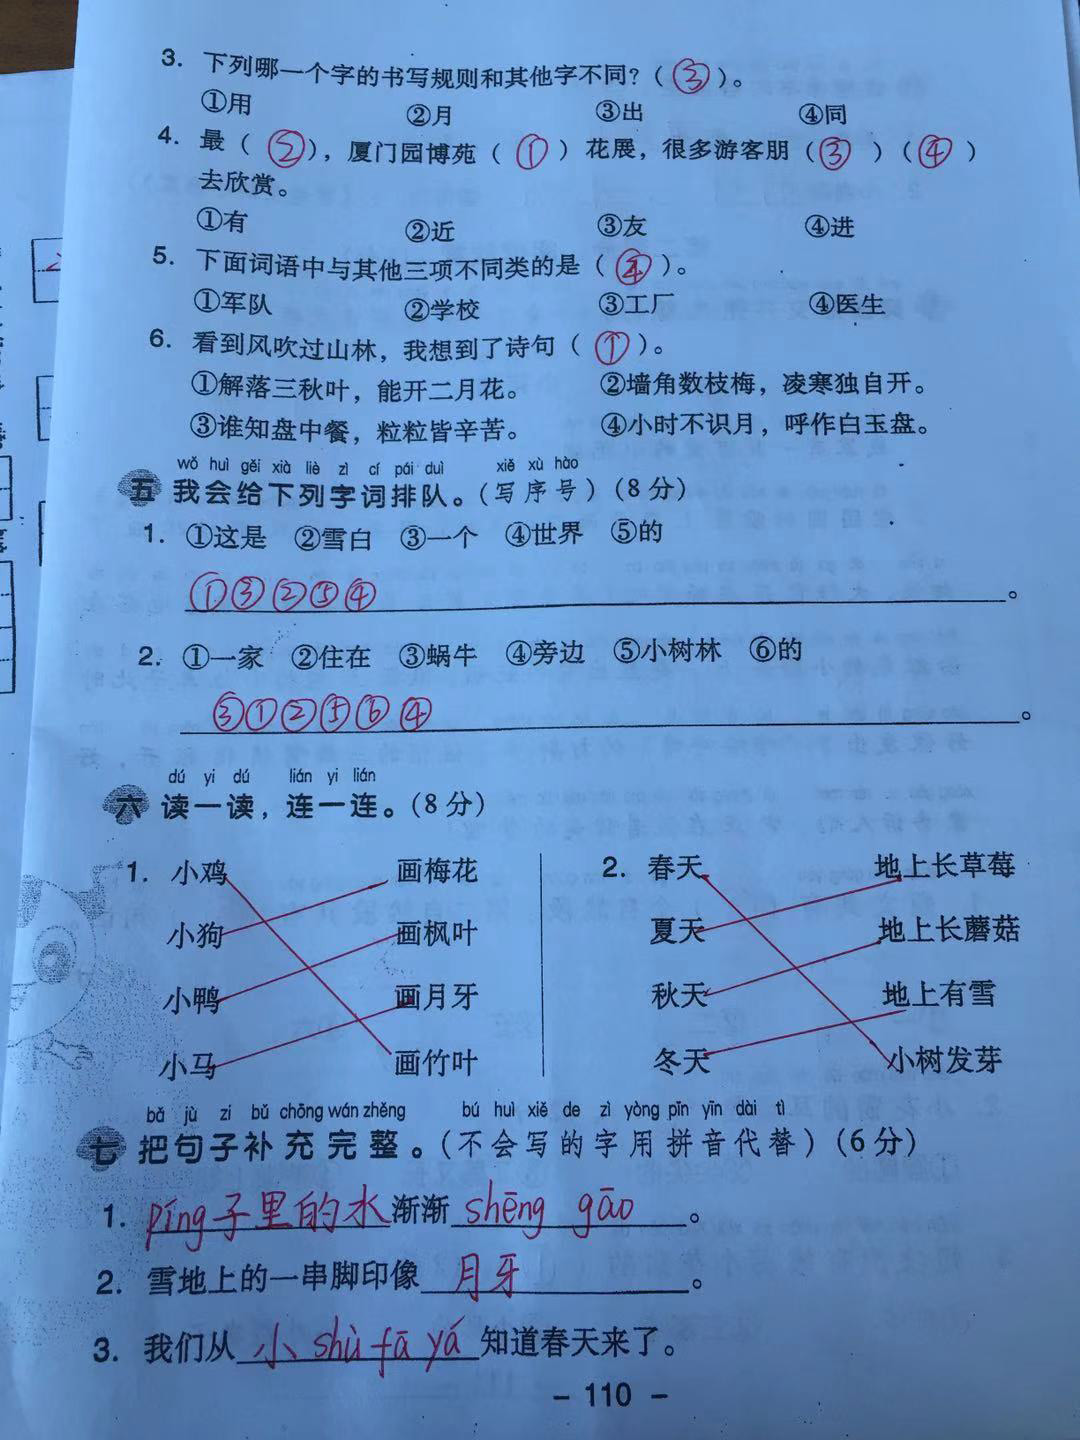 3. 下列哪一个字的书写规则和其他字不同?(③)。
①用 ②月 ③出 ④同
4. 最(②),厦门园博苑(①)花展,很多游客朋(③)(④)
去欣赏。
①有 ②近 ③友 ④进
5. 下面词语中与其他三项不同类的是(④)。
①军队 ②学校 ③工厂 ④医生
6. 看到风吹过山林,我想到了诗句(①)。
①解落三秋叶,能开二月花。 ②墙角数枝梅,凌寒独自开。
③谁知盘中餐,粒粒皆辛苦。 ④小时不识月,呼作白玉盘。
wǒ huì gěi xià liè zì cí pái duì xiě xù hào
五 我会给下列字词排队。(写序号)(8分)
1. ①这是 ②雪白 ③一个 ④世界 ⑤的
①③②⑤④。
2. ①一家 ②住在 ③蜗牛 ④旁边 ⑤小树林 ⑥的
③①②⑤⑥④。
dú yi dú lián yi lián
六 读一读,连一连。(8分)
1. 小鸡 画梅花 2. 春天 地上长草莓
小狗 画枫叶 夏天 地上长蘑菇
小鸭 画月牙 秋天 地上有雪
小马 画竹叶 冬天 小树发芽
bǎ jù zi bǔ chōng wán zhěng bú huì xiě de zì yòng pīn yīn dài tì
七 把句子补充完整。(不会写的字用拼音代替)(6分)
1. píng子里的水渐渐shēng gāo。
2. 雪地上的一串脚印像月牙。
3. 我们从小shù fā yá知道春天来了。
- 110 -